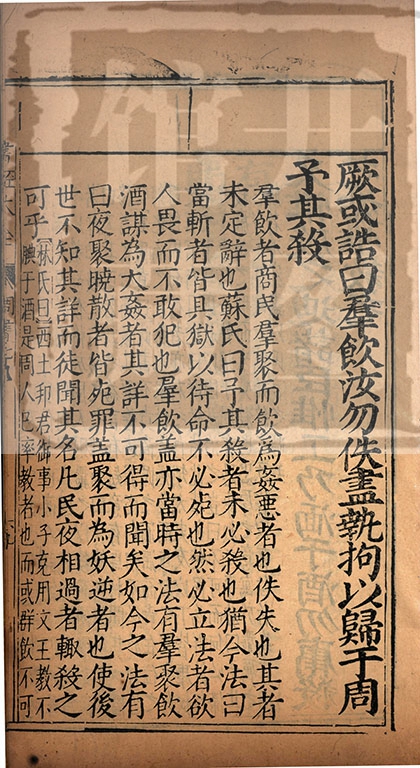 厥或誥曰羣飲汝勿佚盡執拘以歸于周
予其殺
羣飲者商民羣聚而飲為姦惡者也佚失也其者
未定辭也蘇氏曰予其殺者未必殺也猶今法曰
當斬者皆具獄以待命不必死也然必立法者欲
人畏而不敢犯也羣飲盖亦當時之法有羣聚飲
酒謀為大姦者其詳不可得而聞矣如今之法有
曰夜聚曉散者皆死罪盖聚而為妖逆者也使後
世不知其詳而徒聞其名凡民夜相過者輒殺之
可乎林氏曰西土邦君御事小子克用文王教不
腆于酒是周人已率教者也而或群飲不可